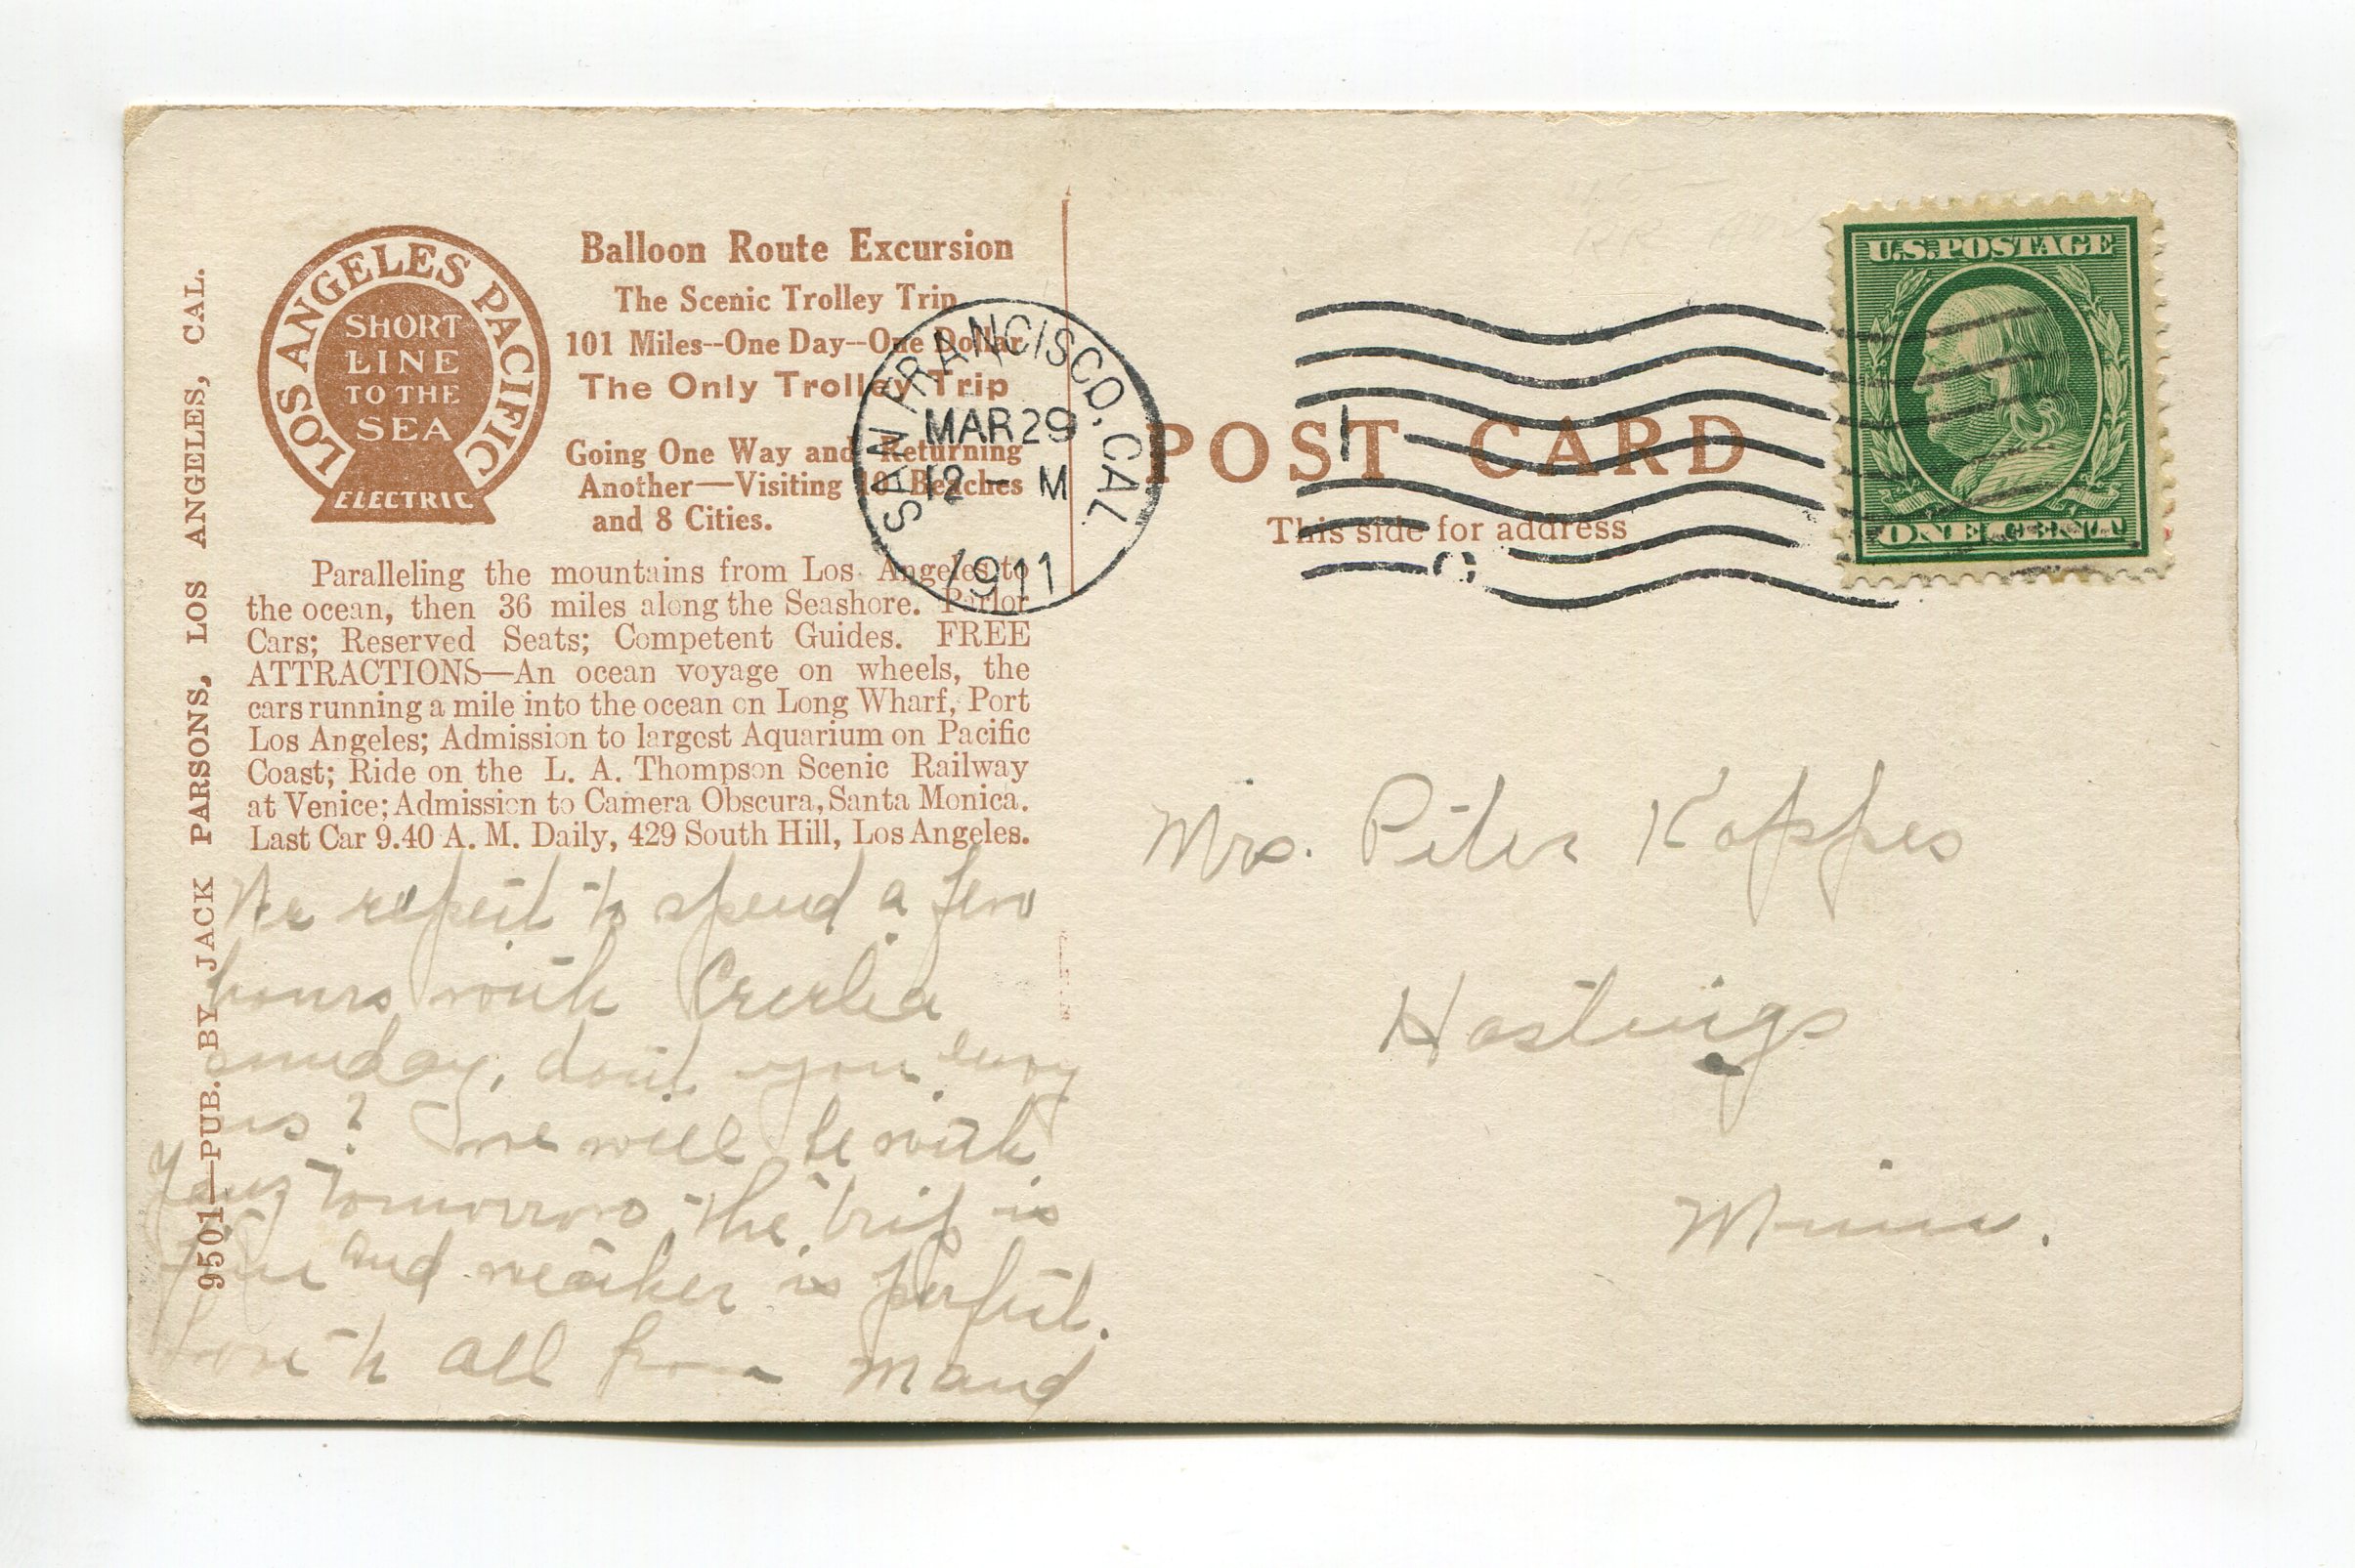 LOS ANGELES PACIFIC
SHORT
LINE
TO THE
SEA
ELECTRIC
Balloon Route Excursion
The Scenic Trolley Trip
101 Miles--One Day--One Dollar
The Only Trolley Trip
Going One Way and Returning
Another—Visiting 10 Beaches
and 8 Cities.
Paralleling the mountains from Los Angeles to
the ocean, then 36 miles along the Seashore. Parlor
Cars; Reserved Seats; Competent Guides. FREE
ATTRACTIONS—An ocean voyage on wheels, the
cars running a mile into the ocean on Long Wharf, Port
Los Angeles; Admission to largest Aquarium on Pacific
Coast; Ride on the L. A. Thompson Scenic Railway
at Venice; Admission to Camera Obscura, Santa Monica.
Last Car 9.40 A. M. Daily, 429 South Hill, Los Angeles.
9501—PUB. BY JACK PARSONS, LOS ANGELES, CAL.
We expect to spend a few
hours with Cecelia
sunday, don't you envy
us? we will be with
tomorrow the trip is
fine and weather is perfect.
Love to all from Maud
SAN FRANCISCO, CAL.
MAR 29
12 - M
1911
POST CARD
This side for address
U.S. POSTAGE
ONE CENT
Mrs. Peter Koppes
Hastings
Minn.